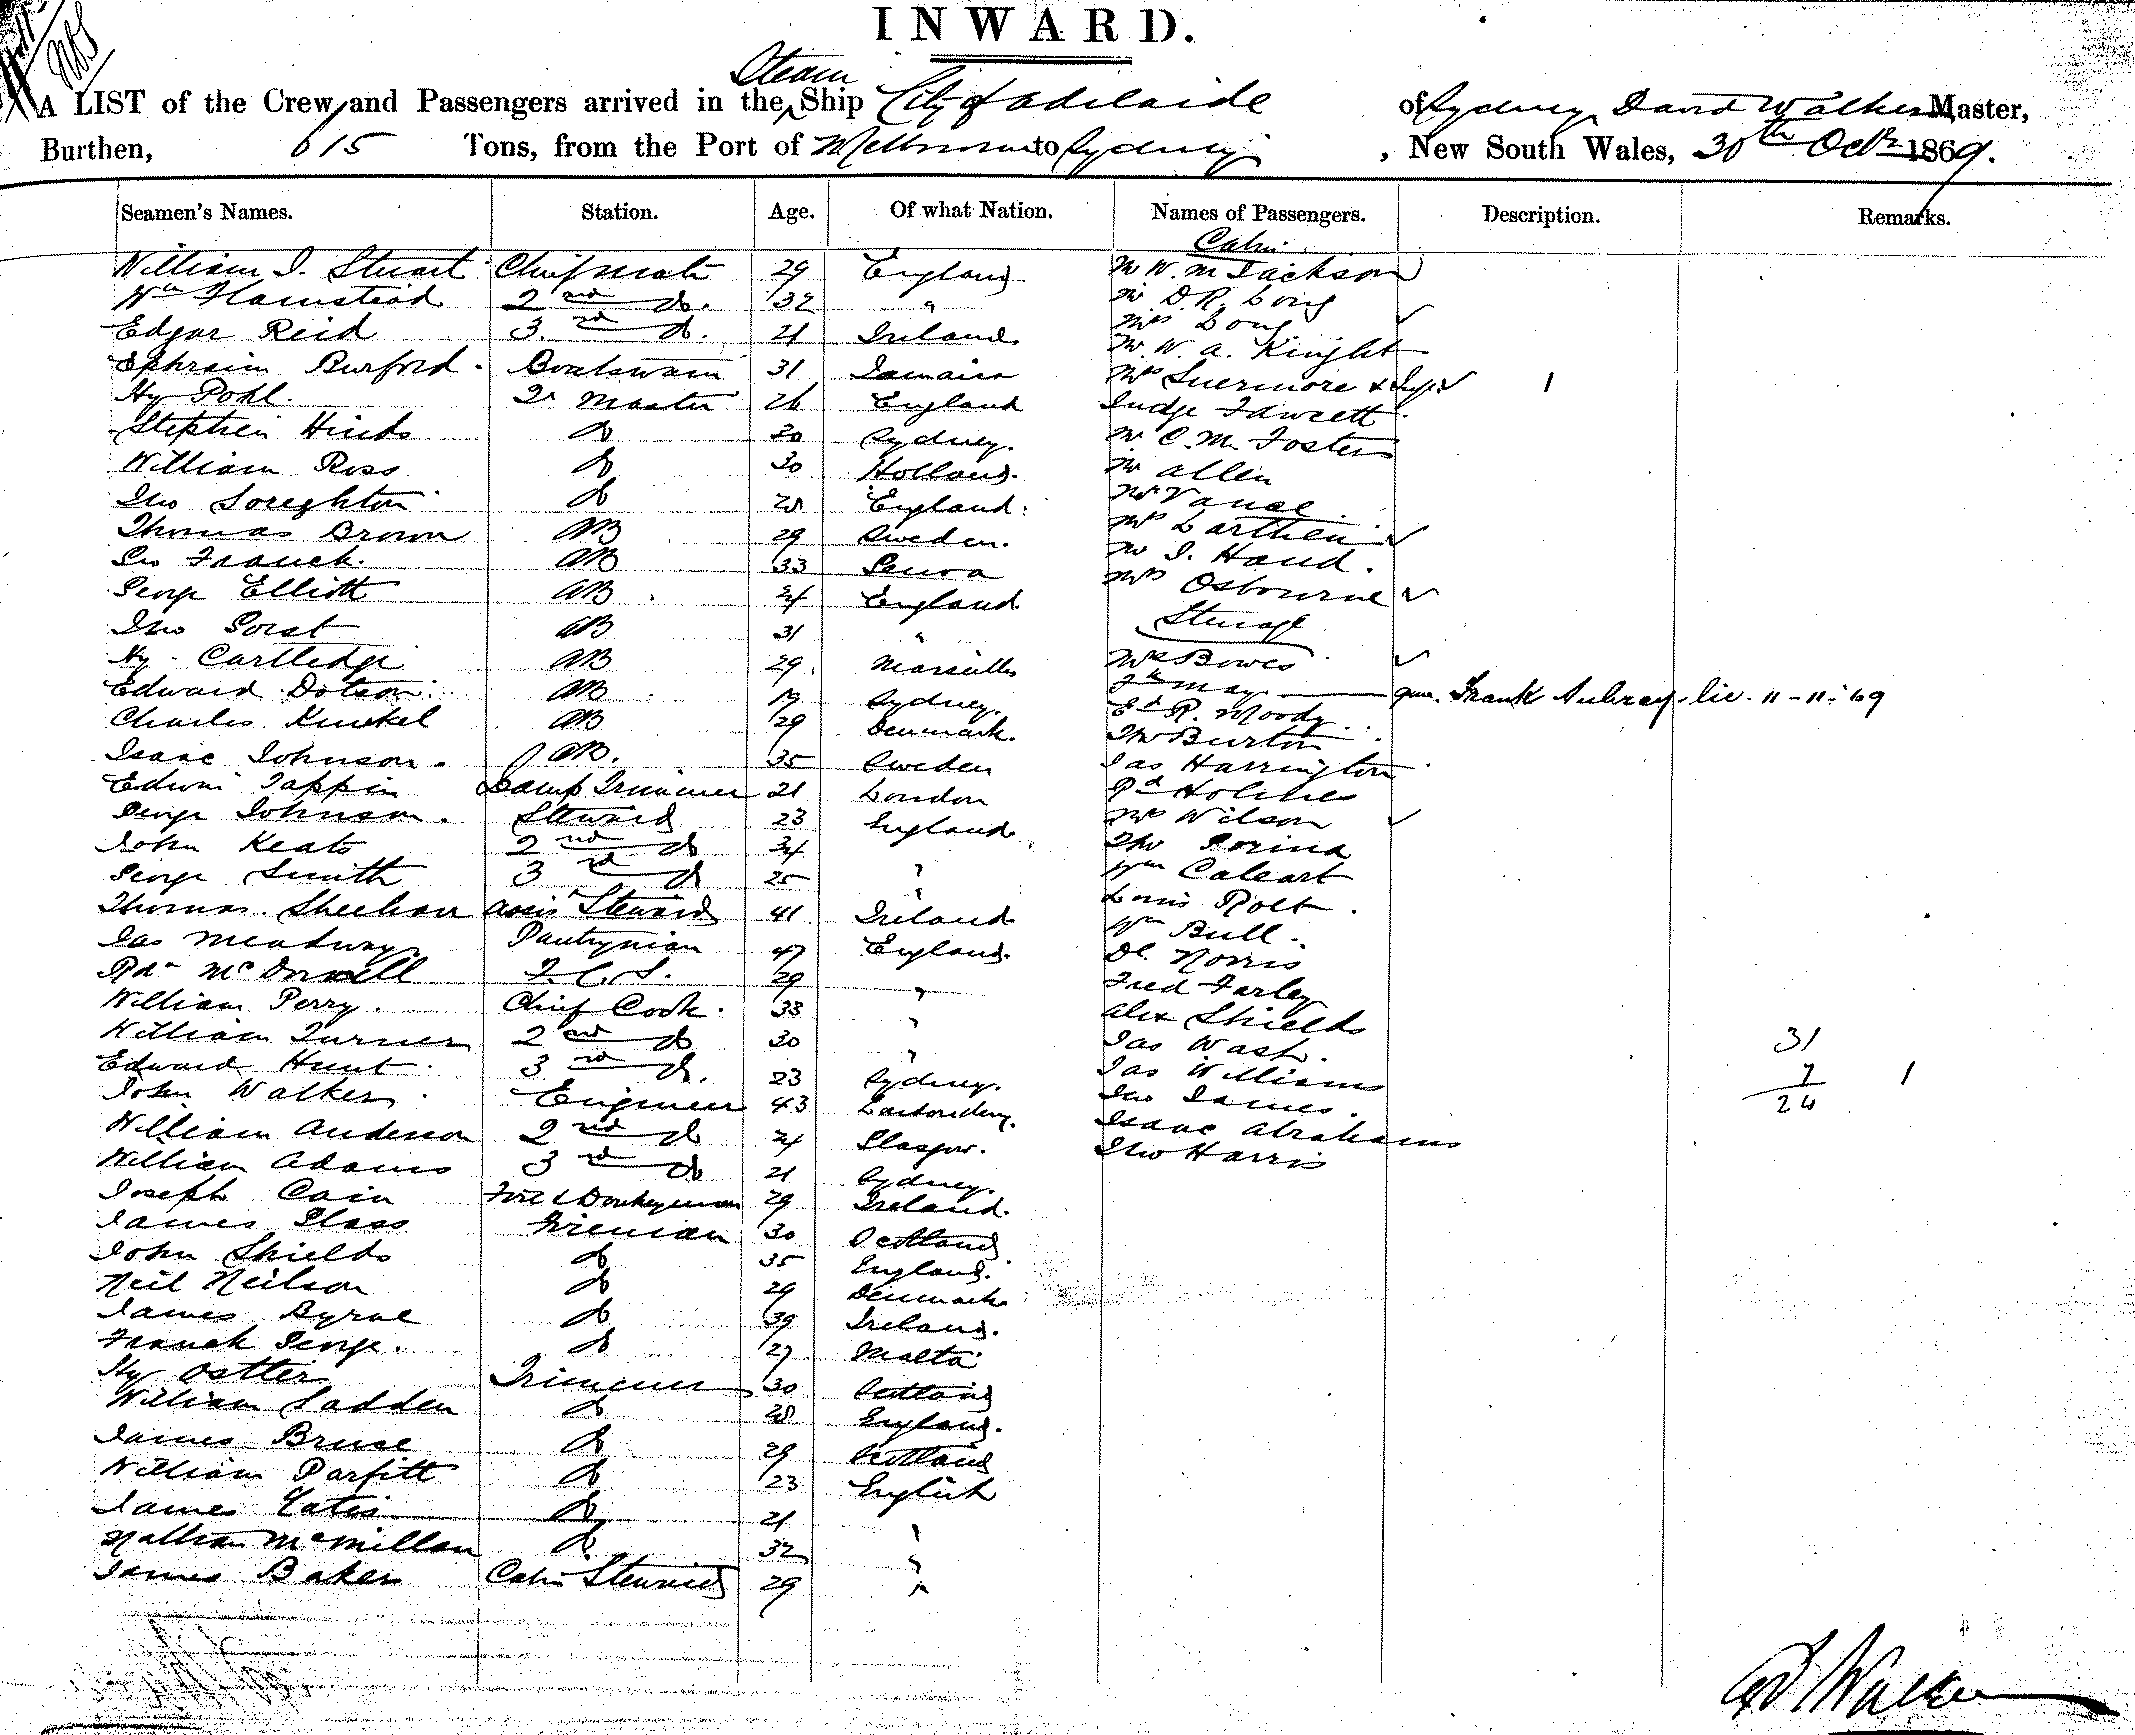 INWARD.
A LIST of the Crew, and Passengers arrived in the Steam Ship City of Adelaide of Sydney David Walker Master,
Burthen, 615 Tons, from the Port of Melbourne to Sydney, New South Wales, 30th Octr 1869.
Seamen's Names. Station. Age. Of what Nation. Names of Passengers. Description. Remarks.
Cabin
William J. Stuart Chief mate 29 England Mr W. M Jackson
Wm Flamstead 2nd do. 32 " Mr D. R. Long
Edgar Reid 3rd do. 21 Ireland Mrs Long
Ephraim Burford Boatswain 31 Jamaica Mr W. A. Knight
Hy Pohl. Qr Master 26 England Mrs 1
Stephen Hinds do 30 Sydney. Judge Fawcett
William Ross do 30 Holland. Mr C. M. Foster
Jno do 28 England. Mr Allen
Thomas Brown AB 29 Sweden. Mr Vance
Franck. AB 33 Mrs
George Elliott AB 24 England Mr J. Hand.
Jno AB 31 " Mrs Osbourne
Steerage
Hy. Cartledge AB 29 Marseilles Mrs Bowes
Edward Dotson AB 19 Sydney. May Frank Aubrey 11-11-69
Charles Kunkel AB 29 Denmark. Ed R. Moody
Isaac Johnson. AB. 35 Sweden Jno Burton
Edwin Tappin Lamp Trimmer 21 London Jas Harrington
George Johnson. Steward 23 England Rd Holmes
John Keats 2nd do 34 " Mrs Wilson
George Smith 3rd do 25 " Jno
Thomas Sheehan Assis Steward 41 Ireland Wm Calcart
Jas Meadway Pantryman 47 England. Louis Rolt.
Rd McDonnell F. C. S. 29 " Wm Bull.
William Perry. Chief Cook. 33 " Dl. Norris
William Turner 2nd do 30 " Fred Farley
Edward Hunt 3rd do. 23 Sydney. Alex Shields 31
John Walker Engineer 43 Jas Wash. 7 1
William Anderson 2nd do 24 Glasgow. Jas Williams 24
William Adams 3rd do 21 Sydney. Jno James.
Joseph Cain Fire & Donkeyman 29 Ireland Isaac Abrahams
James Glass Fireman 30 Scotland Jno Harris
John Shields do 35 England.
Neil Neilson do 29 Denmark
James Byrne do 39 Ireland.
Franck George. do 27 Malta
Hy Ostler Trimmer 30 Scotland
William Sadden do 28 England.
James Bruce do 29 Scotland
William Parfitt do 23 English
James Yates do 21 "
Nathan McMillan do 32 "
James Baker Cabin Steward 29 "
D Walker